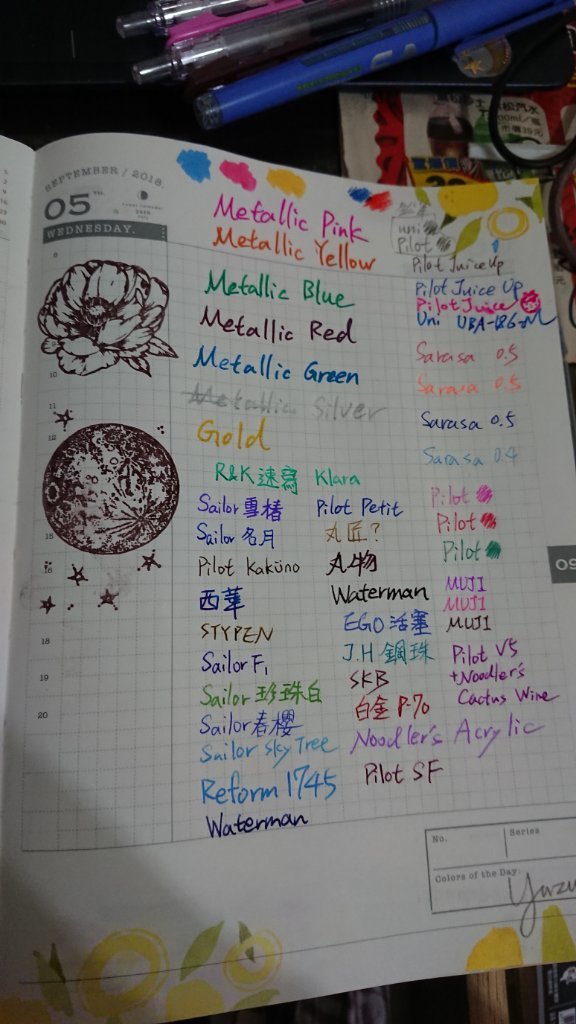 SEPTEMBER / 2018.
05 TH.
WEDNESDAY.
Metallic Pink
Metallic Yellow
Metallic Blue
Metallic Red
Metallic Green
Metallic Silver
Gold
R&K 速寫 Klara
Sailor 雪椿
Sailor 名月
Pilot Kaküno
西華
STYPEN
Sailor F,
Sailor 珍珠白
Sailor 春櫻
Sailor Sky Tree
Reform 1745
Waterman
Pilot Petit
丸匠?
丸物
Waterman
EGO 活塞
J.H 鋼珠
SKB
白金 P-70
Noodler's Acrylic
Pilot SF
uni
Pilot
Pilot Juice Up
Pilot Juice Up
Pilot Juice
Uni UBA-186-M
Sarasa 0.5
Sarasa 0.5
Sarasa 0.5
Sarasa 0.4
Pilot
Pilot
Pilot
MUJI
MUJI
MUJI
Pilot V5
+Noodler's
Cactus Wine
9
10
11
12
15
16
18
19
20
09
No.
Series
Colors of the Day:
Yuzu